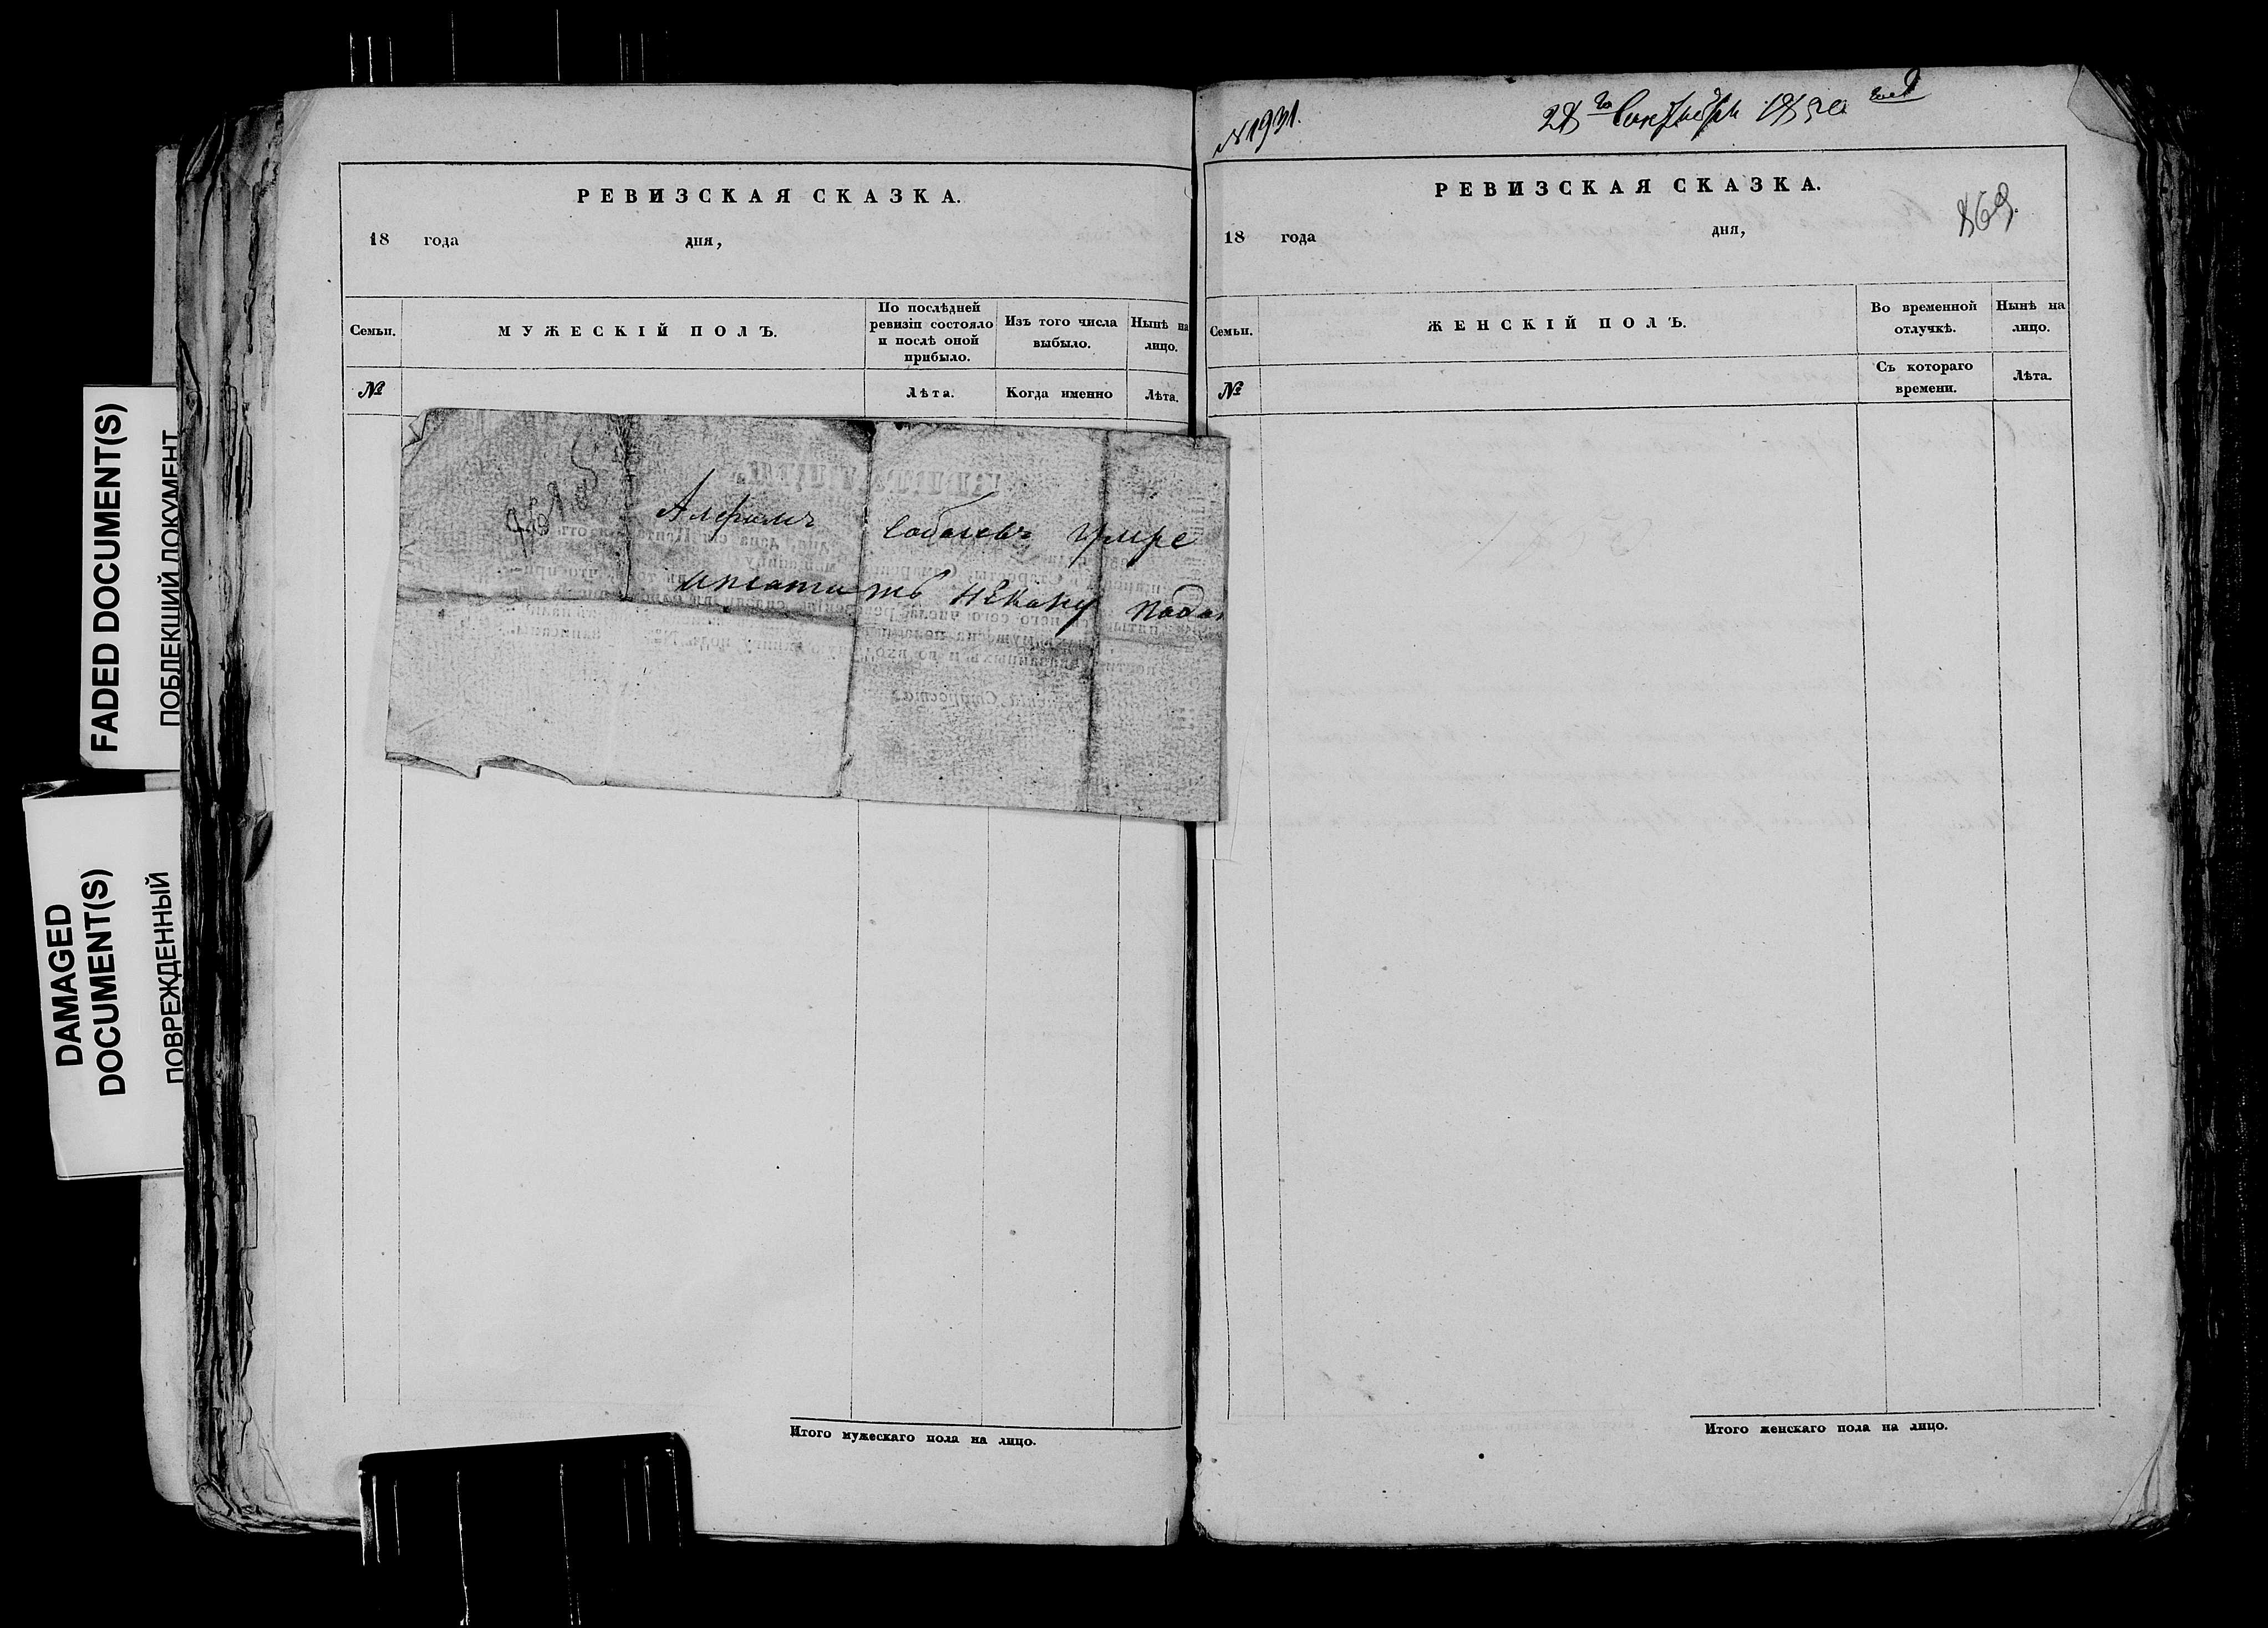 FADED DOCUMENT(S)
ПОБЛЕКШИЙ ДОКУМЕНТ
DAMAGED
DOCUMENT(S)
ПОВРЕЖДЕННЫЙ
РЕВИЗСКАЯ СКАЗКА.
18 года дня,
Семьи.
МУЖЕСКІЙ ПОЛЪ.
По послѣдней
ревизіи состояло
и послѣ оной
прибыло.
Изъ того числа
выбыло.
Нынѣ на
лицо.
№
Лѣта.
Когда именно
Лѣта.
собалевъ умре
некаму
Итого мужескаго пола на лицо.
№1931.
28го Сентября 1850 год
РЕВИЗСКАЯ СКАЗКА.
869.
18 года дня,
Семьи.
ЖЕНСКІЙ ПОЛЪ.
Во временной
отлучкѣ.
Нынѣ на
лицо.
№
Съ котораго
времени.
Лѣта.
Итого женскаго пола на лицо.